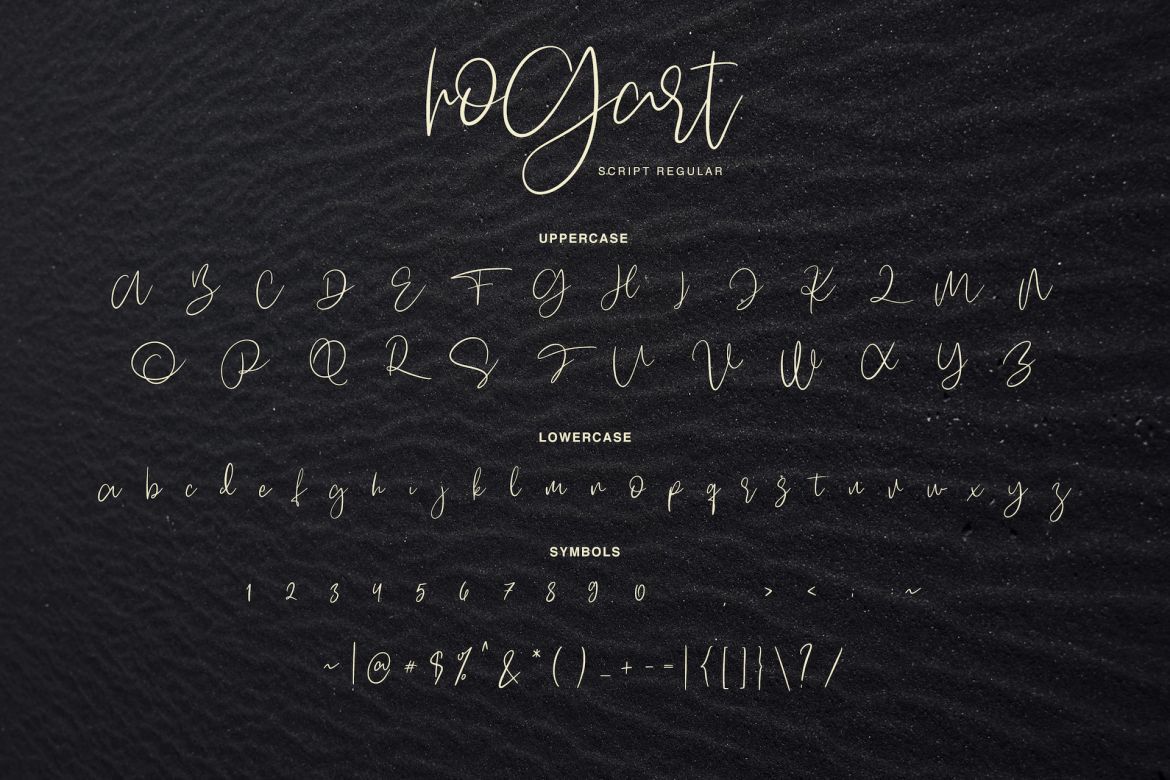 hoGart
SCRIPT REGULAR
UPPERCASE
A B C D E F G H I J K L M N
O P Q R S T U V W X Y Z
LOWERCASE
a b c d e f g h i j k l m n o p q r s t u v w x y z
SYMBOLS
1 2 3 4 5 6 7 8 9 0 , > < ; : ~
~ ! @ # $ % ^ & * ( ) _ + - = | { [ ] } \ ? /